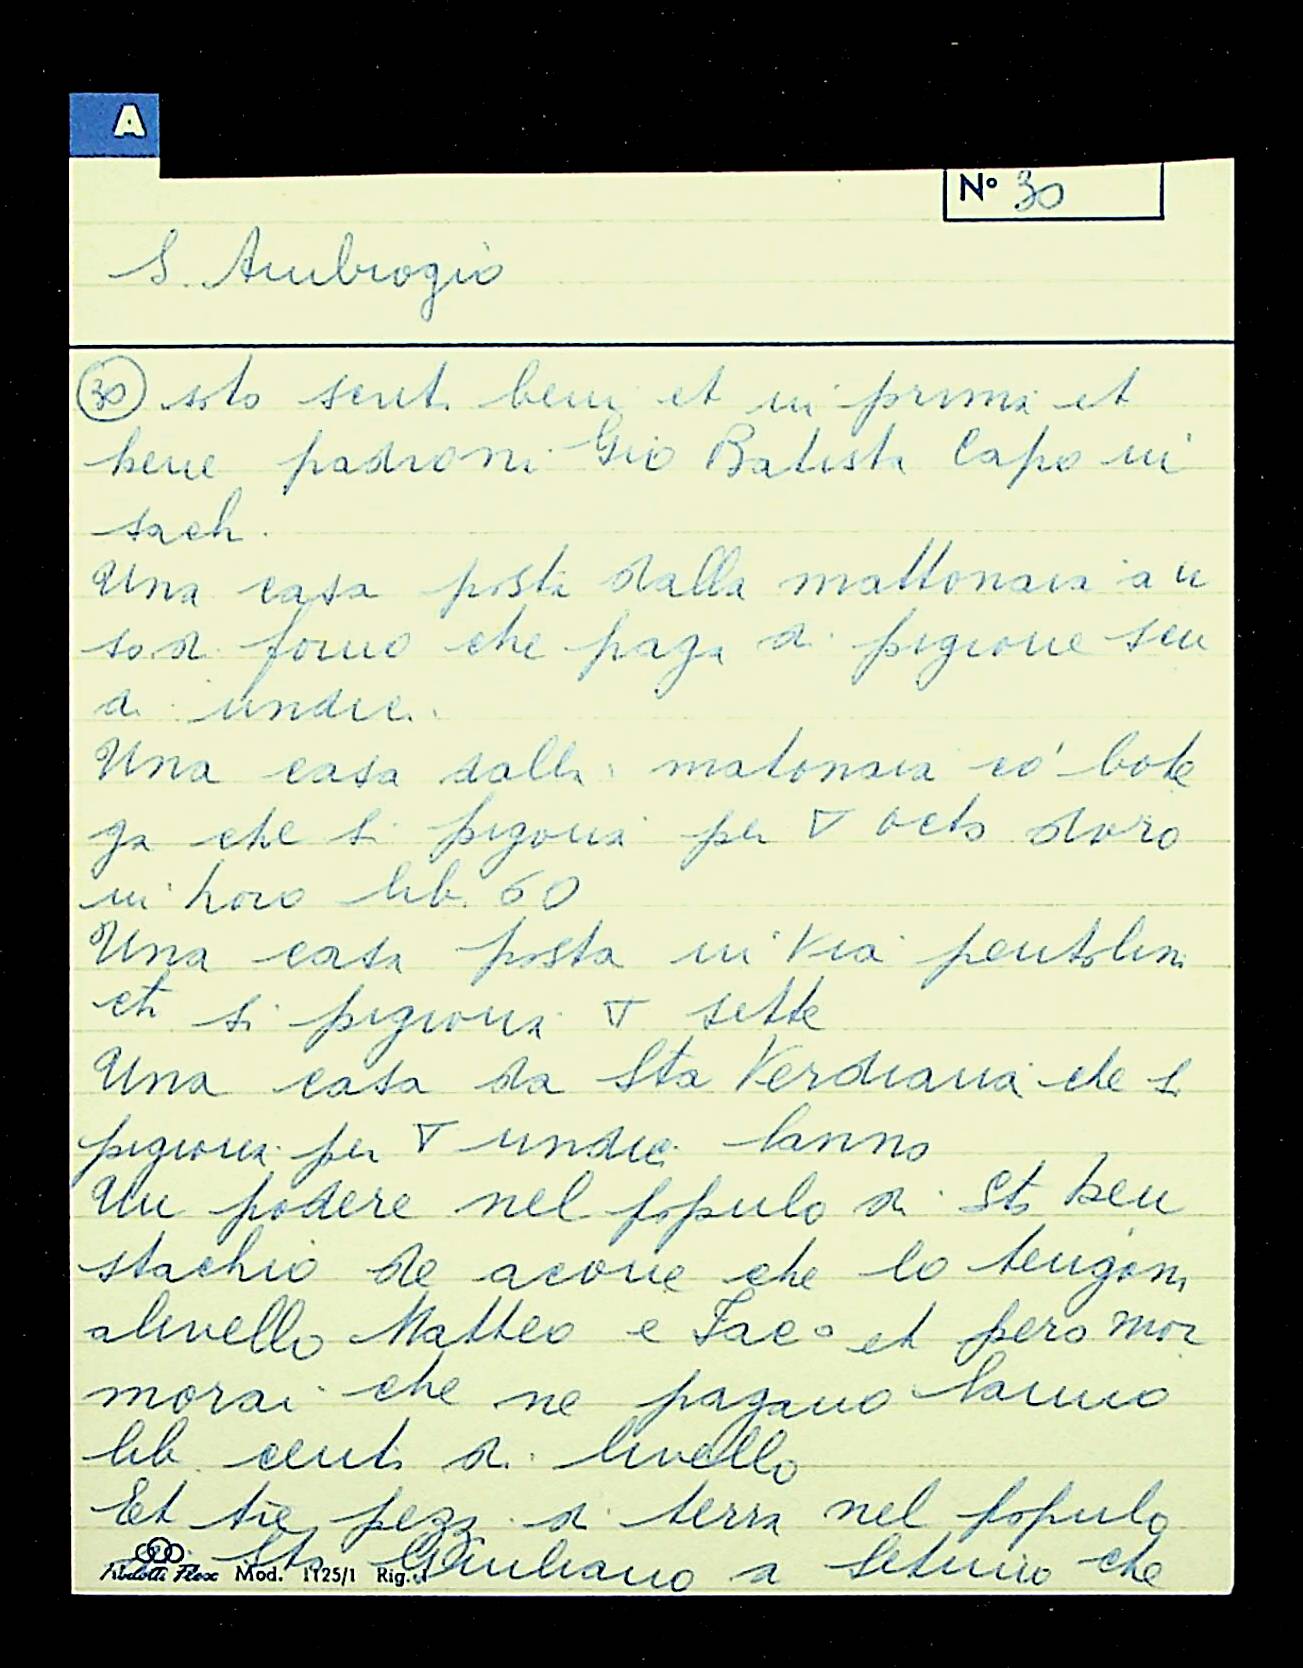 A
N° 30
S. Ambrogio
30 soto scriti beni et in prima et
bene padroni Gio Batista Capo in
sach.
Una casa posta dalla mattonaia a u
so di forno che paga di pigione scu
di undici.
Una casa dalla matonaia co' bote
ga che si pigiona per ∇ octo doro
in horo lib. 60
Una casa posta in Via pentolini
che si pigiona ∇ sette
Una casa da Sta Verdiana che si
pigiona per ∇ undici lanno
Un podere nel populo di Sto heu
stachio de acone che lo tengono
alivello Matteo e Iaco et pero mor
morai che ne pagano lanno
lib. cento di livello
Et tre pezzi di terra nel populo
di Sto Giuliano a Setimo che
Mod. 1125/1 Rig.